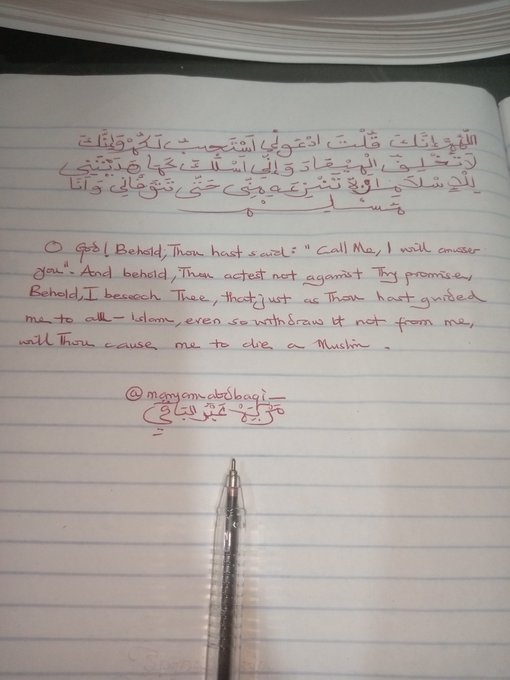 اللَّهُمَّ إِنَّكَ قُلْتَ ادْعُونِي أَسْتَجِبْ لَكُمْ وَإِنَّكَ
لَا تُخْلِفُ الْمِيعَادَ وَإِنِّي أَسْأَلُكَ كَمَا هَدَيْتَنِي
لِلْإِسْلَامِ أَنْ لَا تَنْزِعَهُ مِنِّي حَتَّى تَتَوَفَّانِي وَأَنَا
مُسْلِمٌ
O God! Behold, Thou hast said: "Call Me, I will answer
you". And behold, Thou actest not against Thy promise,
Behold, I beseech Thee, that just as Thou hast guided
me to all-Islam, even so withdraw it not from me,
will Thou cause me to die a Muslim.
@maryamabdbaqi_
مَرْيَمْ عَبْدُ البَاقِي